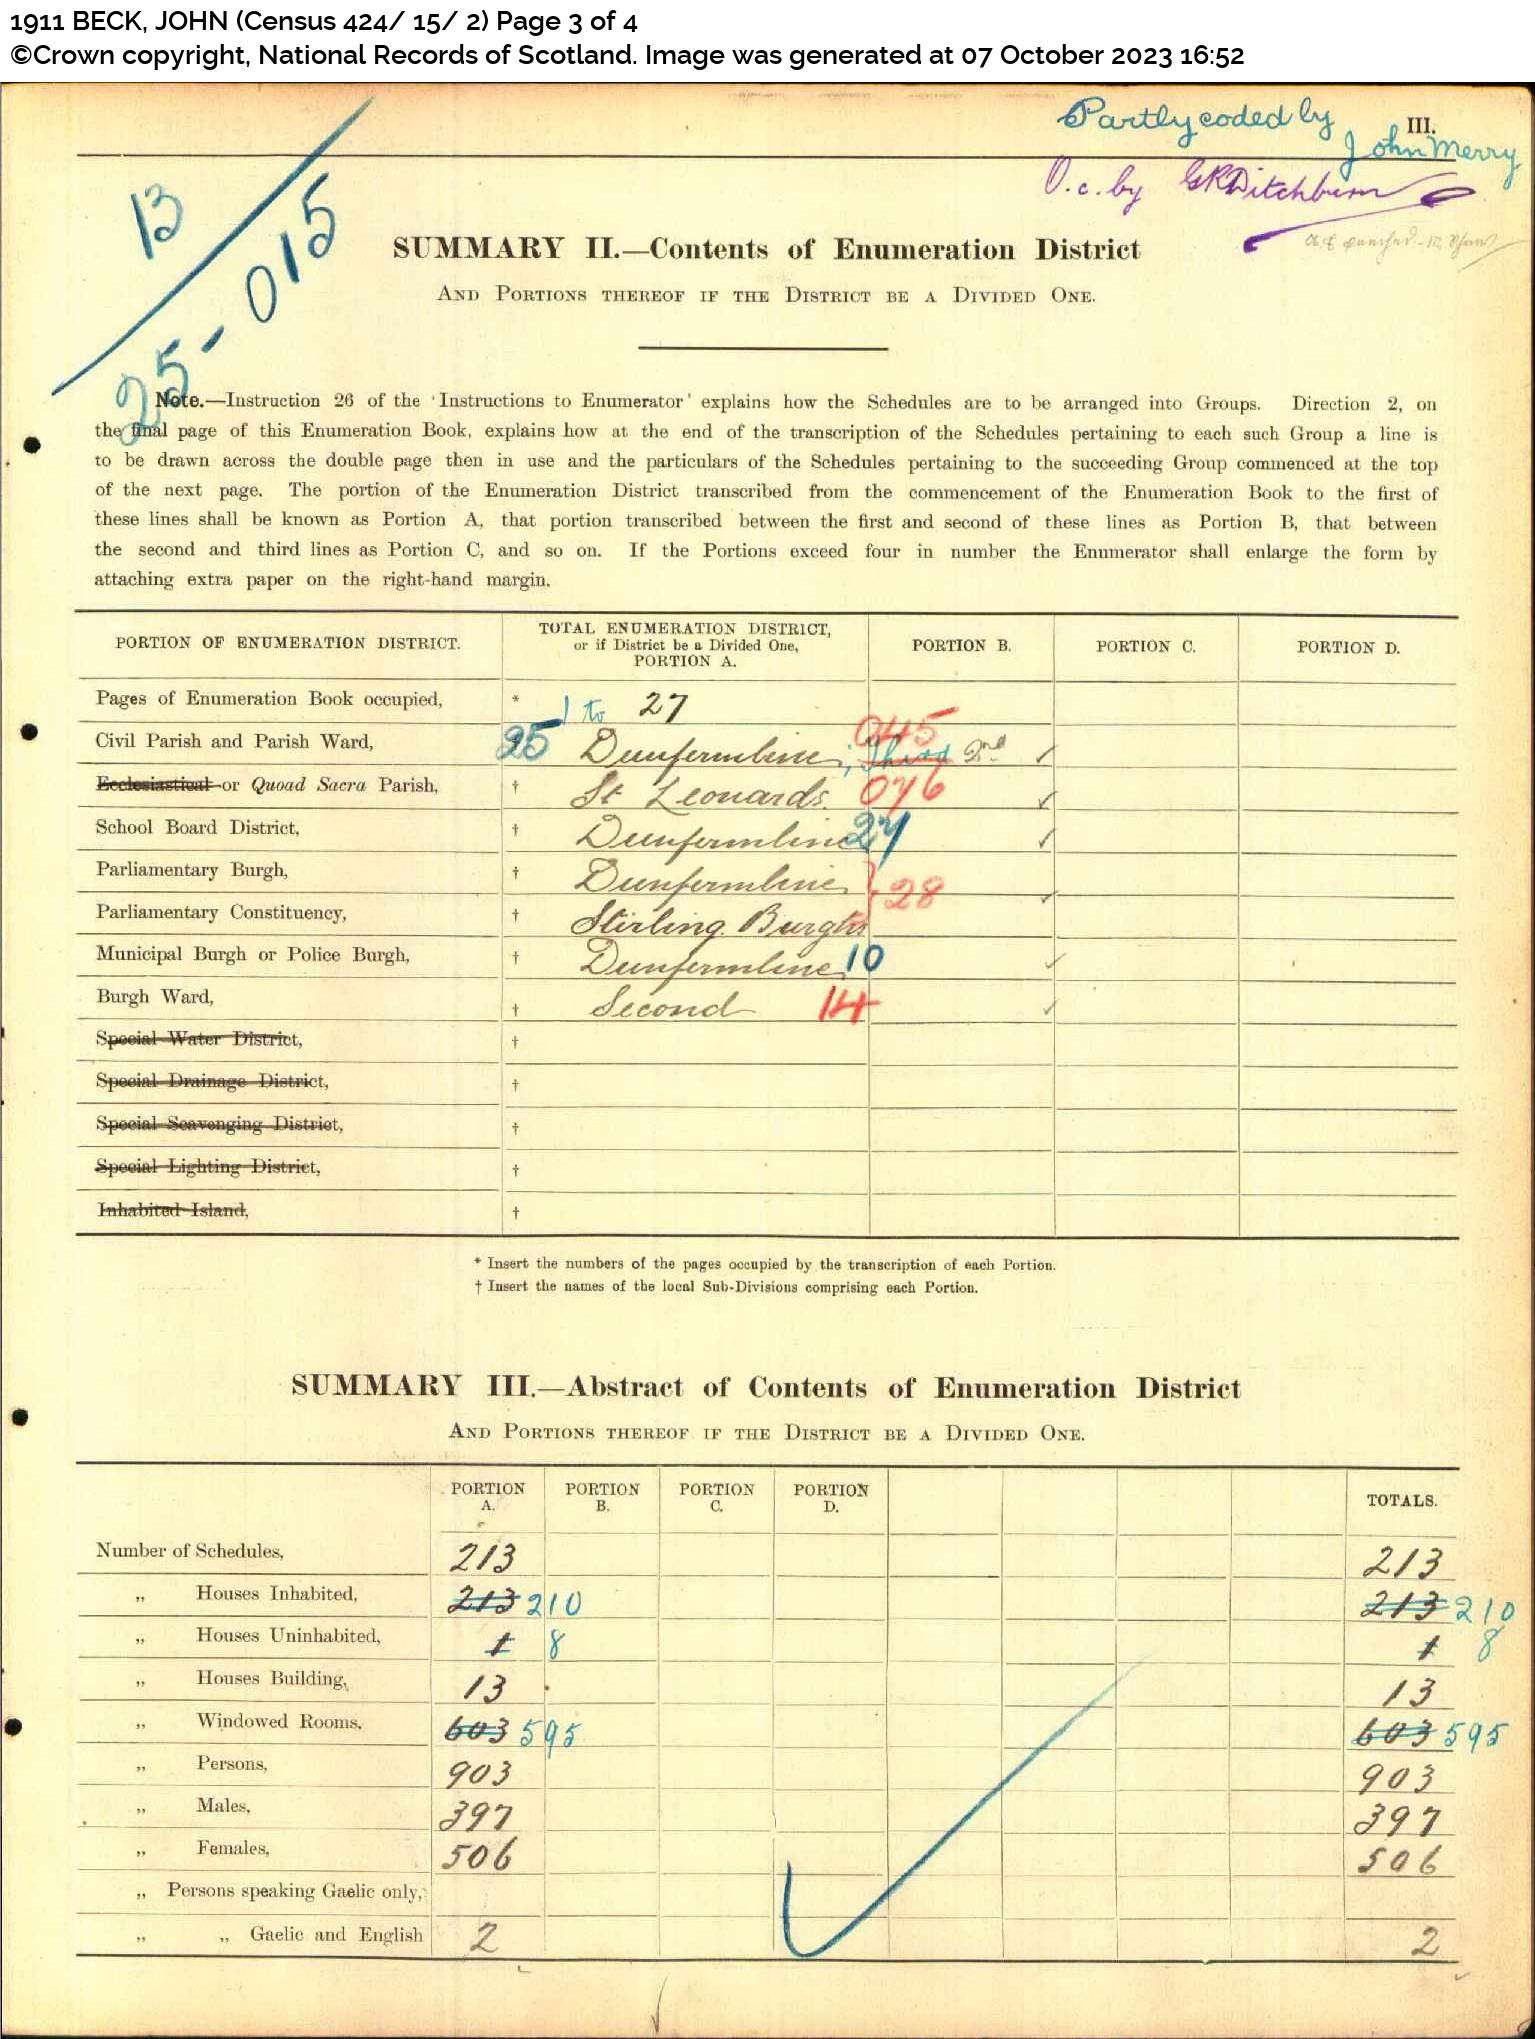 1911 BECK, JOHN (Census 424/ 15/ 2) Page 3 of 4
©Crown copyright, National Records of Scotland. Image was generated at 07 October 2023 16:52
Partly coded by
John Merry
III.
O.c. by GR Ditchburn
13
25-015
SUMMARY II.—Contents of Enumeration District
AND PORTIONS THEREOF IF THE DISTRICT BE A DIVIDED ONE.
Note.—Instruction 26 of the 'Instructions to Enumerator' explains how the Schedules are to be arranged into Groups. Direction 2, on
the final page of this Enumeration Book, explains how at the end of the transcription of the Schedules pertaining to each such Group a line is
to be drawn across the double page then in use and the particulars of the Schedules pertaining to the succeeding Group commenced at the top
of the next page. The portion of the Enumeration District transcribed from the commencement of the Enumeration Book to the first of
these lines shall be known as Portion A, that portion transcribed between the first and second of these lines as Portion B, that between
the second and third lines as Portion C, and so on. If the Portions exceed four in number the Enumerator shall enlarge the form by
attaching extra paper on the right-hand margin.
PORTION OF ENUMERATION DISTRICT. TOTAL ENUMERATION DISTRICT, or if District be a Divided One, PORTION A. PORTION B. PORTION C. PORTION D.
Pages of Enumeration Book occupied, * 1 to 27
Civil Parish and Parish Ward, 25 Dunfermline; Third 2nd 045 ✓
Ecclesiastical or Quoad Sacra Parish, † St Leonards. 076 ✓
School Board District, † Dunfermline 27 ✓
Parliamentary Burgh, † Dunfermline } 28 ✓
Parliamentary Constituency, † Stirling Burghs
Municipal Burgh or Police Burgh, † Dunfermline 10 ✓
Burgh Ward, † Second 14 ✓
Special Water District, †
Special Drainage District, †
Special Scavenging District, †
Special Lighting District, †
Inhabited Island, †
* Insert the numbers of the pages occupied by the transcription of each Portion.
† Insert the names of the local Sub-Divisions comprising each Portion.
SUMMARY III.—Abstract of Contents of Enumeration District
AND PORTIONS THEREOF IF THE DISTRICT BE A DIVIDED ONE.
PORTION A. PORTION B. PORTION C. PORTION D. TOTALS.
Number of Schedules, 213 213
„ Houses Inhabited, 213 210 213 210
„ Houses Uninhabited, 1 8 1 8
„ Houses Building, 13 13
„ Windowed Rooms, 603 595 603 595
„ Persons, 903 903
„ Males, 397 397
„ Females, 506 506
„ Persons speaking Gaelic only,
„ „ Gaelic and English 2 2